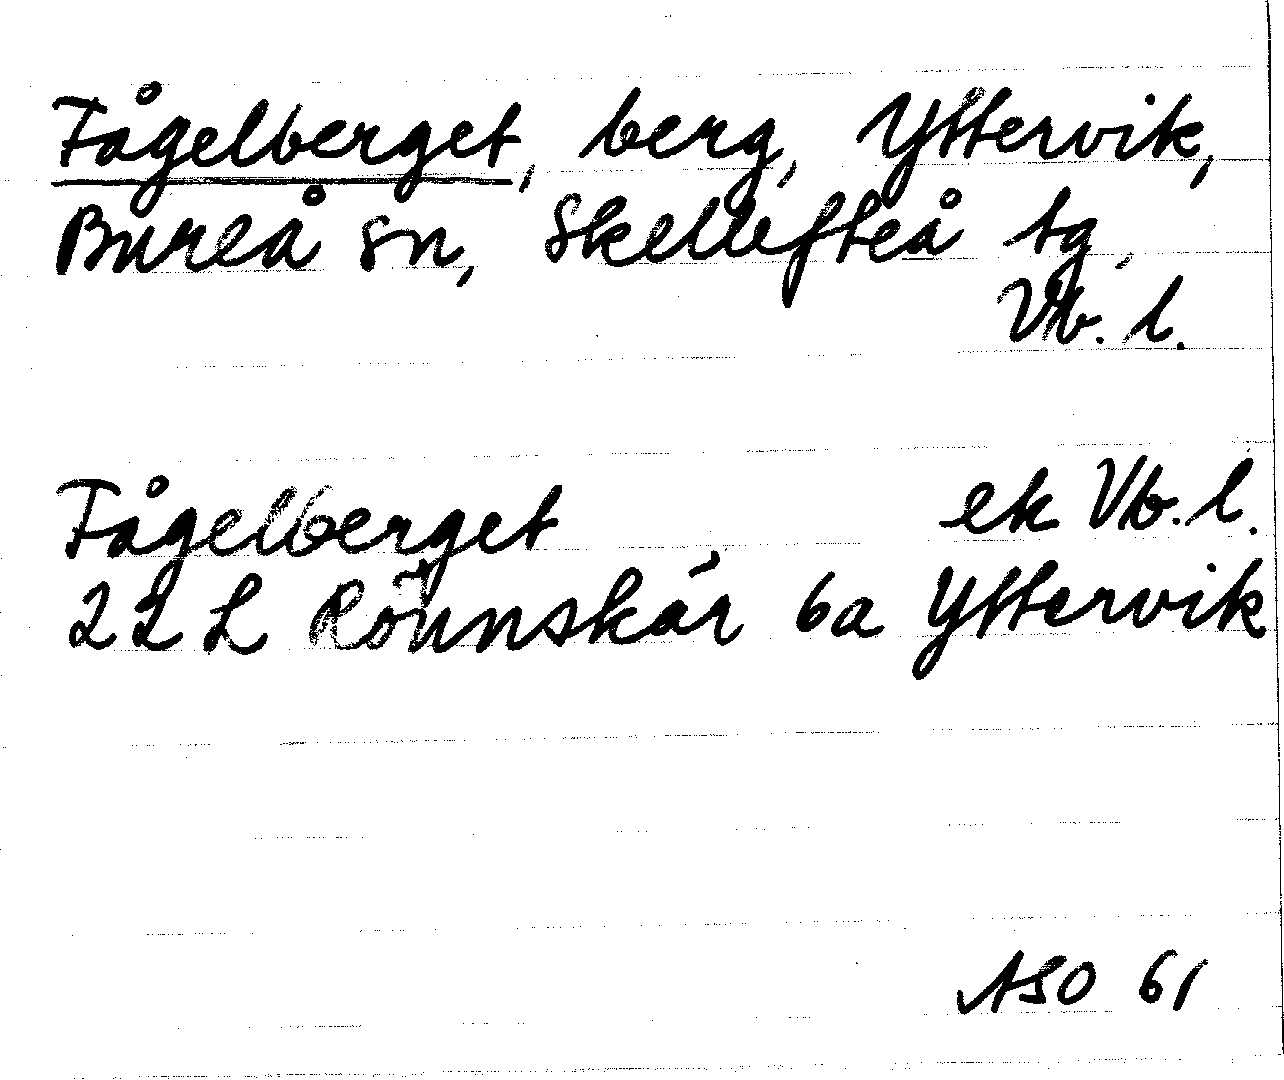 Fågelberget, berg, Yttervik,
Bureå sn, Skellefteå tg,
Vb. l.
Fågelberget ek Vb. l.
22 L Rönnskär 6a Yttervik
ASO 61